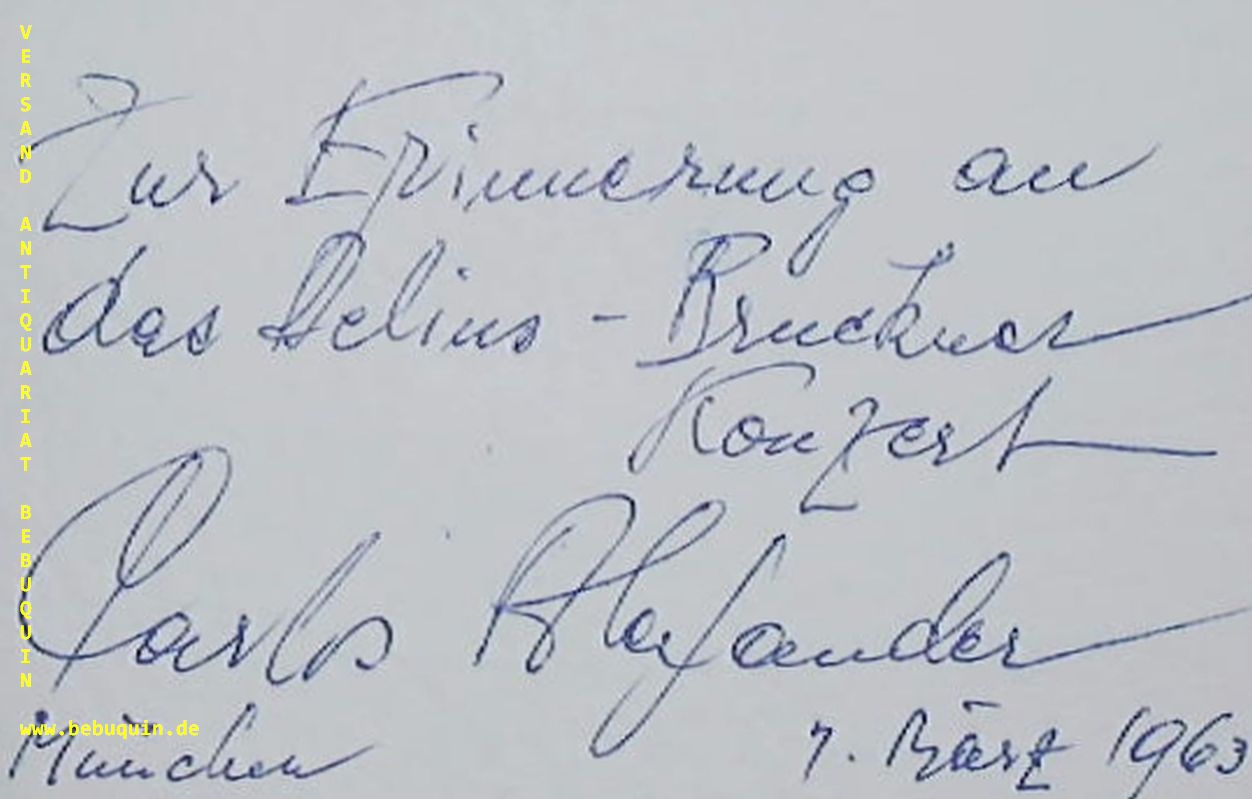 VERSAND ANTIQUARIAT BEBUQUIN
Zur Erinnerung an
das Delius - Bruckner
Konzert
Carlos Alexander
www.bebuquin.de
München 7. März 1963